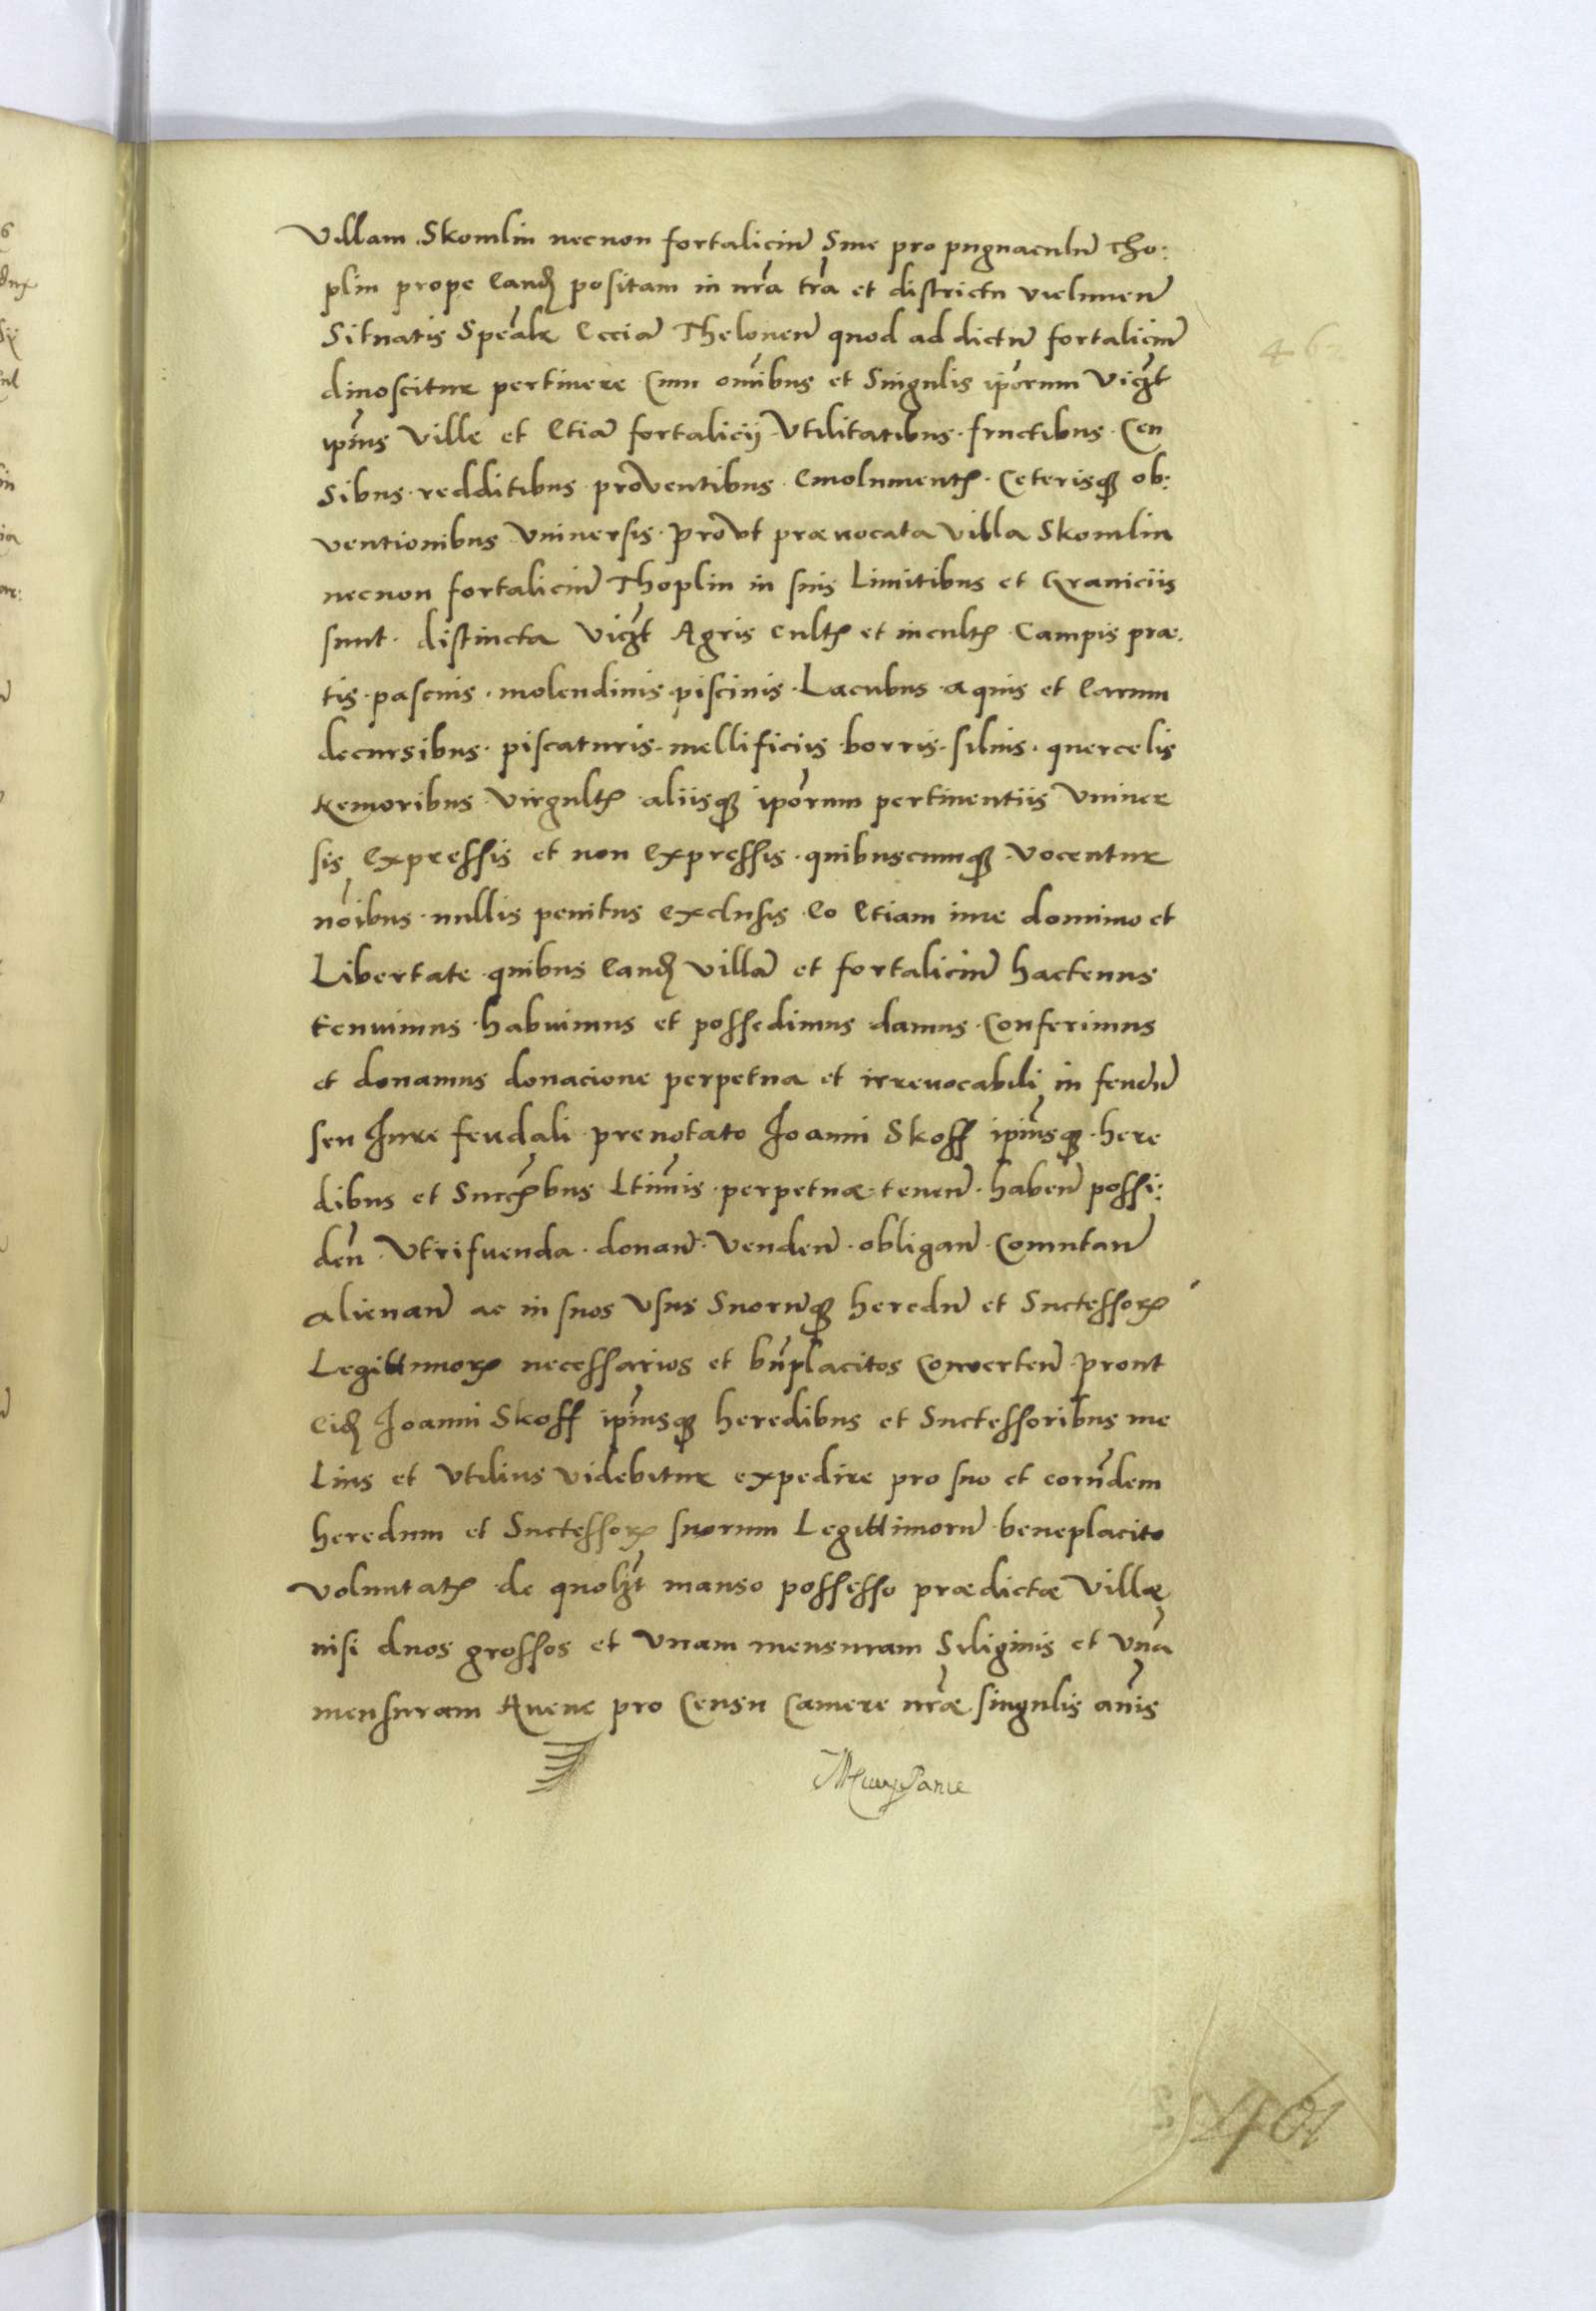 Villam Skomlin necnon fortaliciū Siue pro pugnaculū Tho:
plin prope eandꝫ positam in nr̃a tr̃a et districtu vielunen̄
Situatis Speãlr̃ Ecciā Thelonen̄ quod ad dictū fortaliciū
dinoscitur pertinere Cum om̃ibus et Singulis ip̃orum Vicꝫt
ip̃ius Ville et Etiā fortalicij Vtilitatibus · fructibus · Cen
Sibus · redditibus · proventibus · Emolumentꝭ · Ceterisqꝫ ob:
ventionibus Vniuersis · Provt præuocata Villa Skomlin
necnon fortaliciū Thoplin in suis Limitibus et Graniciis
sunt · distincta Vicꝫt Agris cultꝭ et incultꝭ Campis pra:
tis · pascuis · molendinis · piscinis · Lacubus · aquis et Earum
decursibus · piscaturis · mellificiis · borris · siluis · quercetis
Nemoribus · Virgultꝭ · aliisqꝫ ip̃orum pertinentiis Vniuer
sis Expressis et non Expressis · quibuscumqꝫ · vocentur
nõibus · nullis penitus Exclusis · Eo Etiam iure dominio et
Libertate · quibus Eandꝫ villā et fortaliciū hactenus
tenuimus · habuimus et possedimus damus · Conferimus
et donamus donacione perpetua et irreuocabili in feudū
seu Iure feudali · prenotato Ioanni Skoff ip̃iusqꝫ · here
dibus et Succꝭbus Ltĩmis · perpetuæ · tenen̄ · haben̄ possi:
den̄ · Vtrifruenda · donan̄ · Venden̄ · obligan̄ · Comutan̄
alienan̄ ac in suos Vsus Suorūqꝫ heredū et Successorꝝ
Legittimorꝝ necessarios et bñplacitos Converten̄ · prout
Eidꝫ Ioanni Skoff ip̃iusqꝫ heredibus et Successoribus me
Lius et Vtilius videbitur expedire pro suo et eorūdem
heredum et Successorꝝ suorum Legittimorū beneplacito
voluntatꝭ · de quolꝫt manso possesso prædictæ Villæ
nisi duos grossos et Vnam mensuram Siliginis et Vnā
mensuram Auene pro Censu Camere nr̃æ singulis an̄is
461